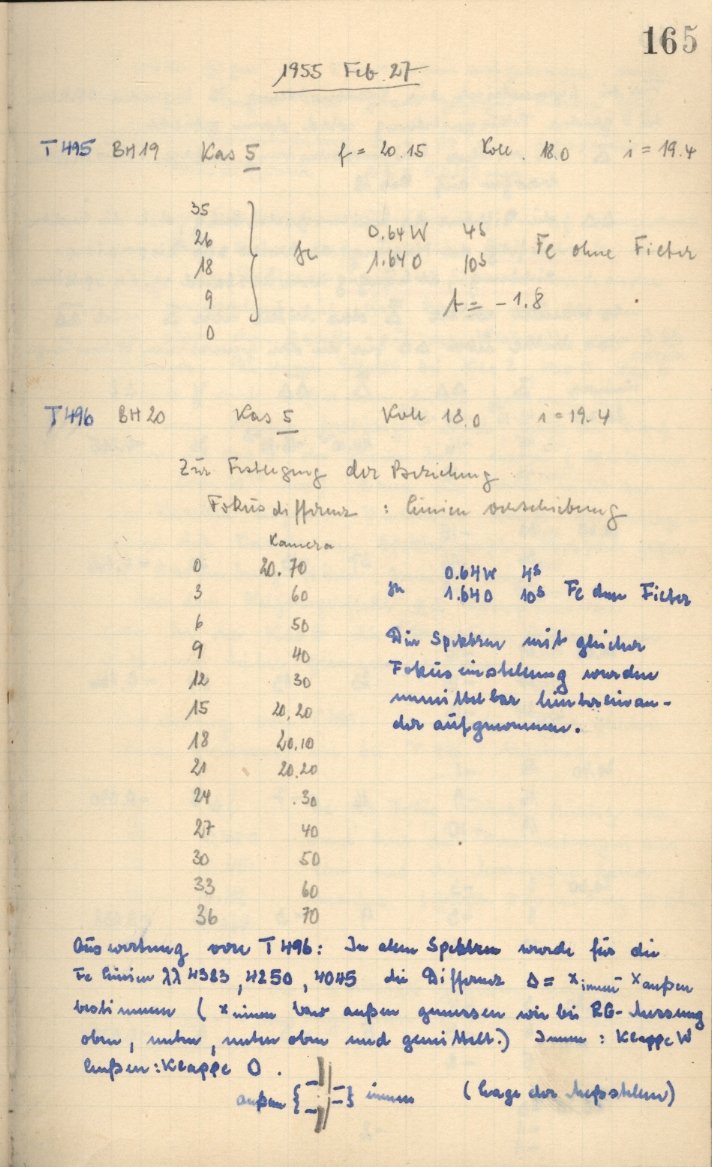 165
1955 Feb 27.
T495 BH19 Kas 5 f = 20.15 Koll. 18.0 i = 19.4
35
26
18
9
0
je 0.64 W 4s
1.64 O 10s
Fe ohne Filter
t = -1.8
T496 BH20 Kas 5 Koll 18.0 i = 19.4
Zur Festlegung der Beziehung
Fokusdifferenz : Linienverschiebung
Kamera
0 20.70
3 60
6 50
9 40
12 30
15 20.20
18 20.10
21 20.20
24 .30
27 40
30 50
33 60
36 70
je 0.64 W 4s
1.64 O 10s Fe ohne Filter
Die Spektren mit gleicher
Fokuseinstellung wurden
unmittelbar hintereinan-
der aufgenommen.
Auswertung von T496: In allen Spektren wurde für die
Fe Linien λλ 4383, 4250, 4045 die Differenz Δ = x innen - x außen
bestimmt (x innen bzw außen gemessen wie bei RG-Messung
oben, unten, unten oben und gemittelt.) Innen : Klappe W
Außen : Klappe O.
außen { } innen (Lage der Meßstellen)